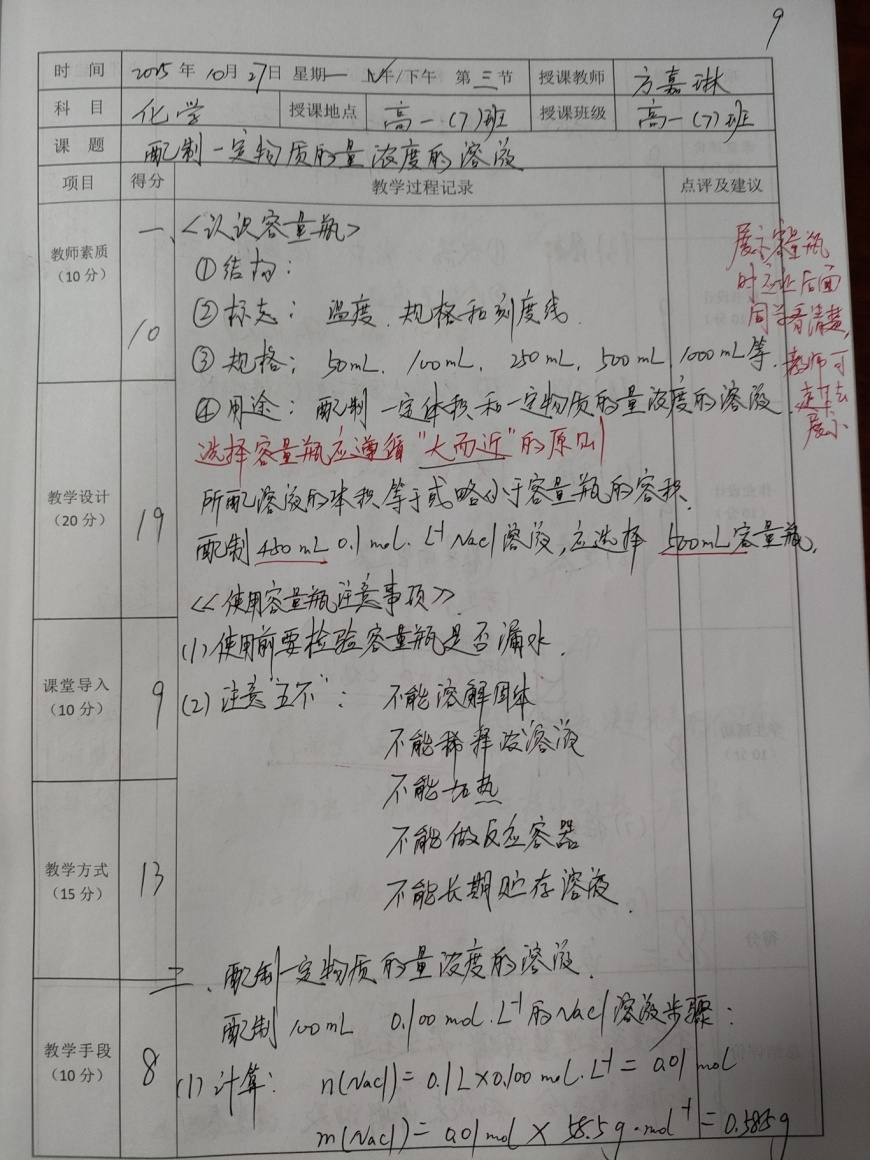 9
时 间 2025年10月27日 星期一 上午/下午 第三节 授课教师 方嘉琳
科 目 化学 授课地点 高一(7)班 授课班级 高一(7)班
课 题 配制一定物质的量浓度的溶液
项目 得分 教学过程记录 点评及建议
教师素质
(10分)
10
一、<认识容量瓶>
①结构:
②标志: 温度、规格和刻度线.
③规格: 50mL、100mL、250mL、500mL、1000mL等.
④用途: 配制一定体积和一定物质的量浓度的溶液
选择容量瓶应遵循"大而近"的原则
展示容量瓶
时应让后面
同学看清楚,
教师可
走下去
展示
教学设计
(20分)
19
所配溶液的体积等于或略小于容量瓶的容积.
配制450mL 0.1mol·L⁻¹NaCl溶液,应选择500mL容量瓶.
<<使用容量瓶注意事项>>
课堂导入
(10分)
9
(1)使用前要检验容量瓶是否漏水.
(2)注意"五不": 不能溶解固体
不能稀释浓溶液
不能加热
不能做反应容器
不能长期贮存溶液.
教学方式
(15分)
13
二、配制一定物质的量浓度的溶液.
配制100mL 0.100mol·L⁻¹的NaCl溶液步骤:
教学手段
(10分)
8
(1)计算: n(NaCl)=0.1L×0.100mol·L⁻¹=0.01mol
m(NaCl)=0.01mol×58.5g·mol⁻¹=0.585g